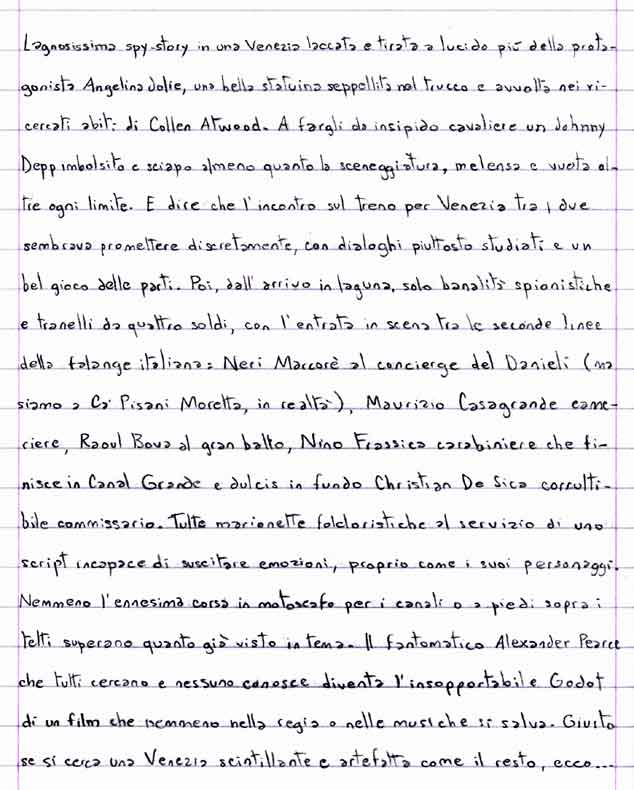 Lagnosissima spy-story in una Venezia laccata e tirata a lucido più della prota-
gonista Angelina Jolie, una bella statuina seppellita nel trucco e avvolta nei ri-
cercati abiti di Collen Atwood. A fargli da insipido cavaliere un Johnny
Depp imbolsito e sciapo almeno quanto la sceneggiatura, melensa e vuota ol-
tre ogni limite. E dire che l'incontro sul treno per Venezia tra i due
sembrava promettere discretamente, con dialoghi piuttosto studiati e un
bel gioco delle parti. Poi, dall'arrivo in laguna, solo banalità spionistiche
e tranelli da quattro soldi, con l'entrata in scena tra le seconde linee
della falange italiana: Neri Marcorè al concierge del Danieli (ma
siamo a Ca' Pisani Moretta, in realtà), Maurizio Casagrande came-
riere, Raoul Bova al gran ballo, Nino Frassica carabiniere che fi-
nisce in Canal Grande e dulcis in fundo Christian De Sica corrutti-
bile commissario. Tutte marionette folcloristiche al servizio di uno
script incapace di suscitare emozioni, proprio come i suoi personaggi.
Nemmeno l'ennesima corsa in motoscafo per i canali o a piedi sopra i
tetti superano quanto già visto in tema. Il fantomatico Alexander Pearce
che tutti cercano e nessuno conosce diventa l'insopportabile Godot
di un film che nemmeno nella regia o nelle musiche si salva. Giusto
se si cerca una Venezia scintillante e artefatta come il resto, ecco...